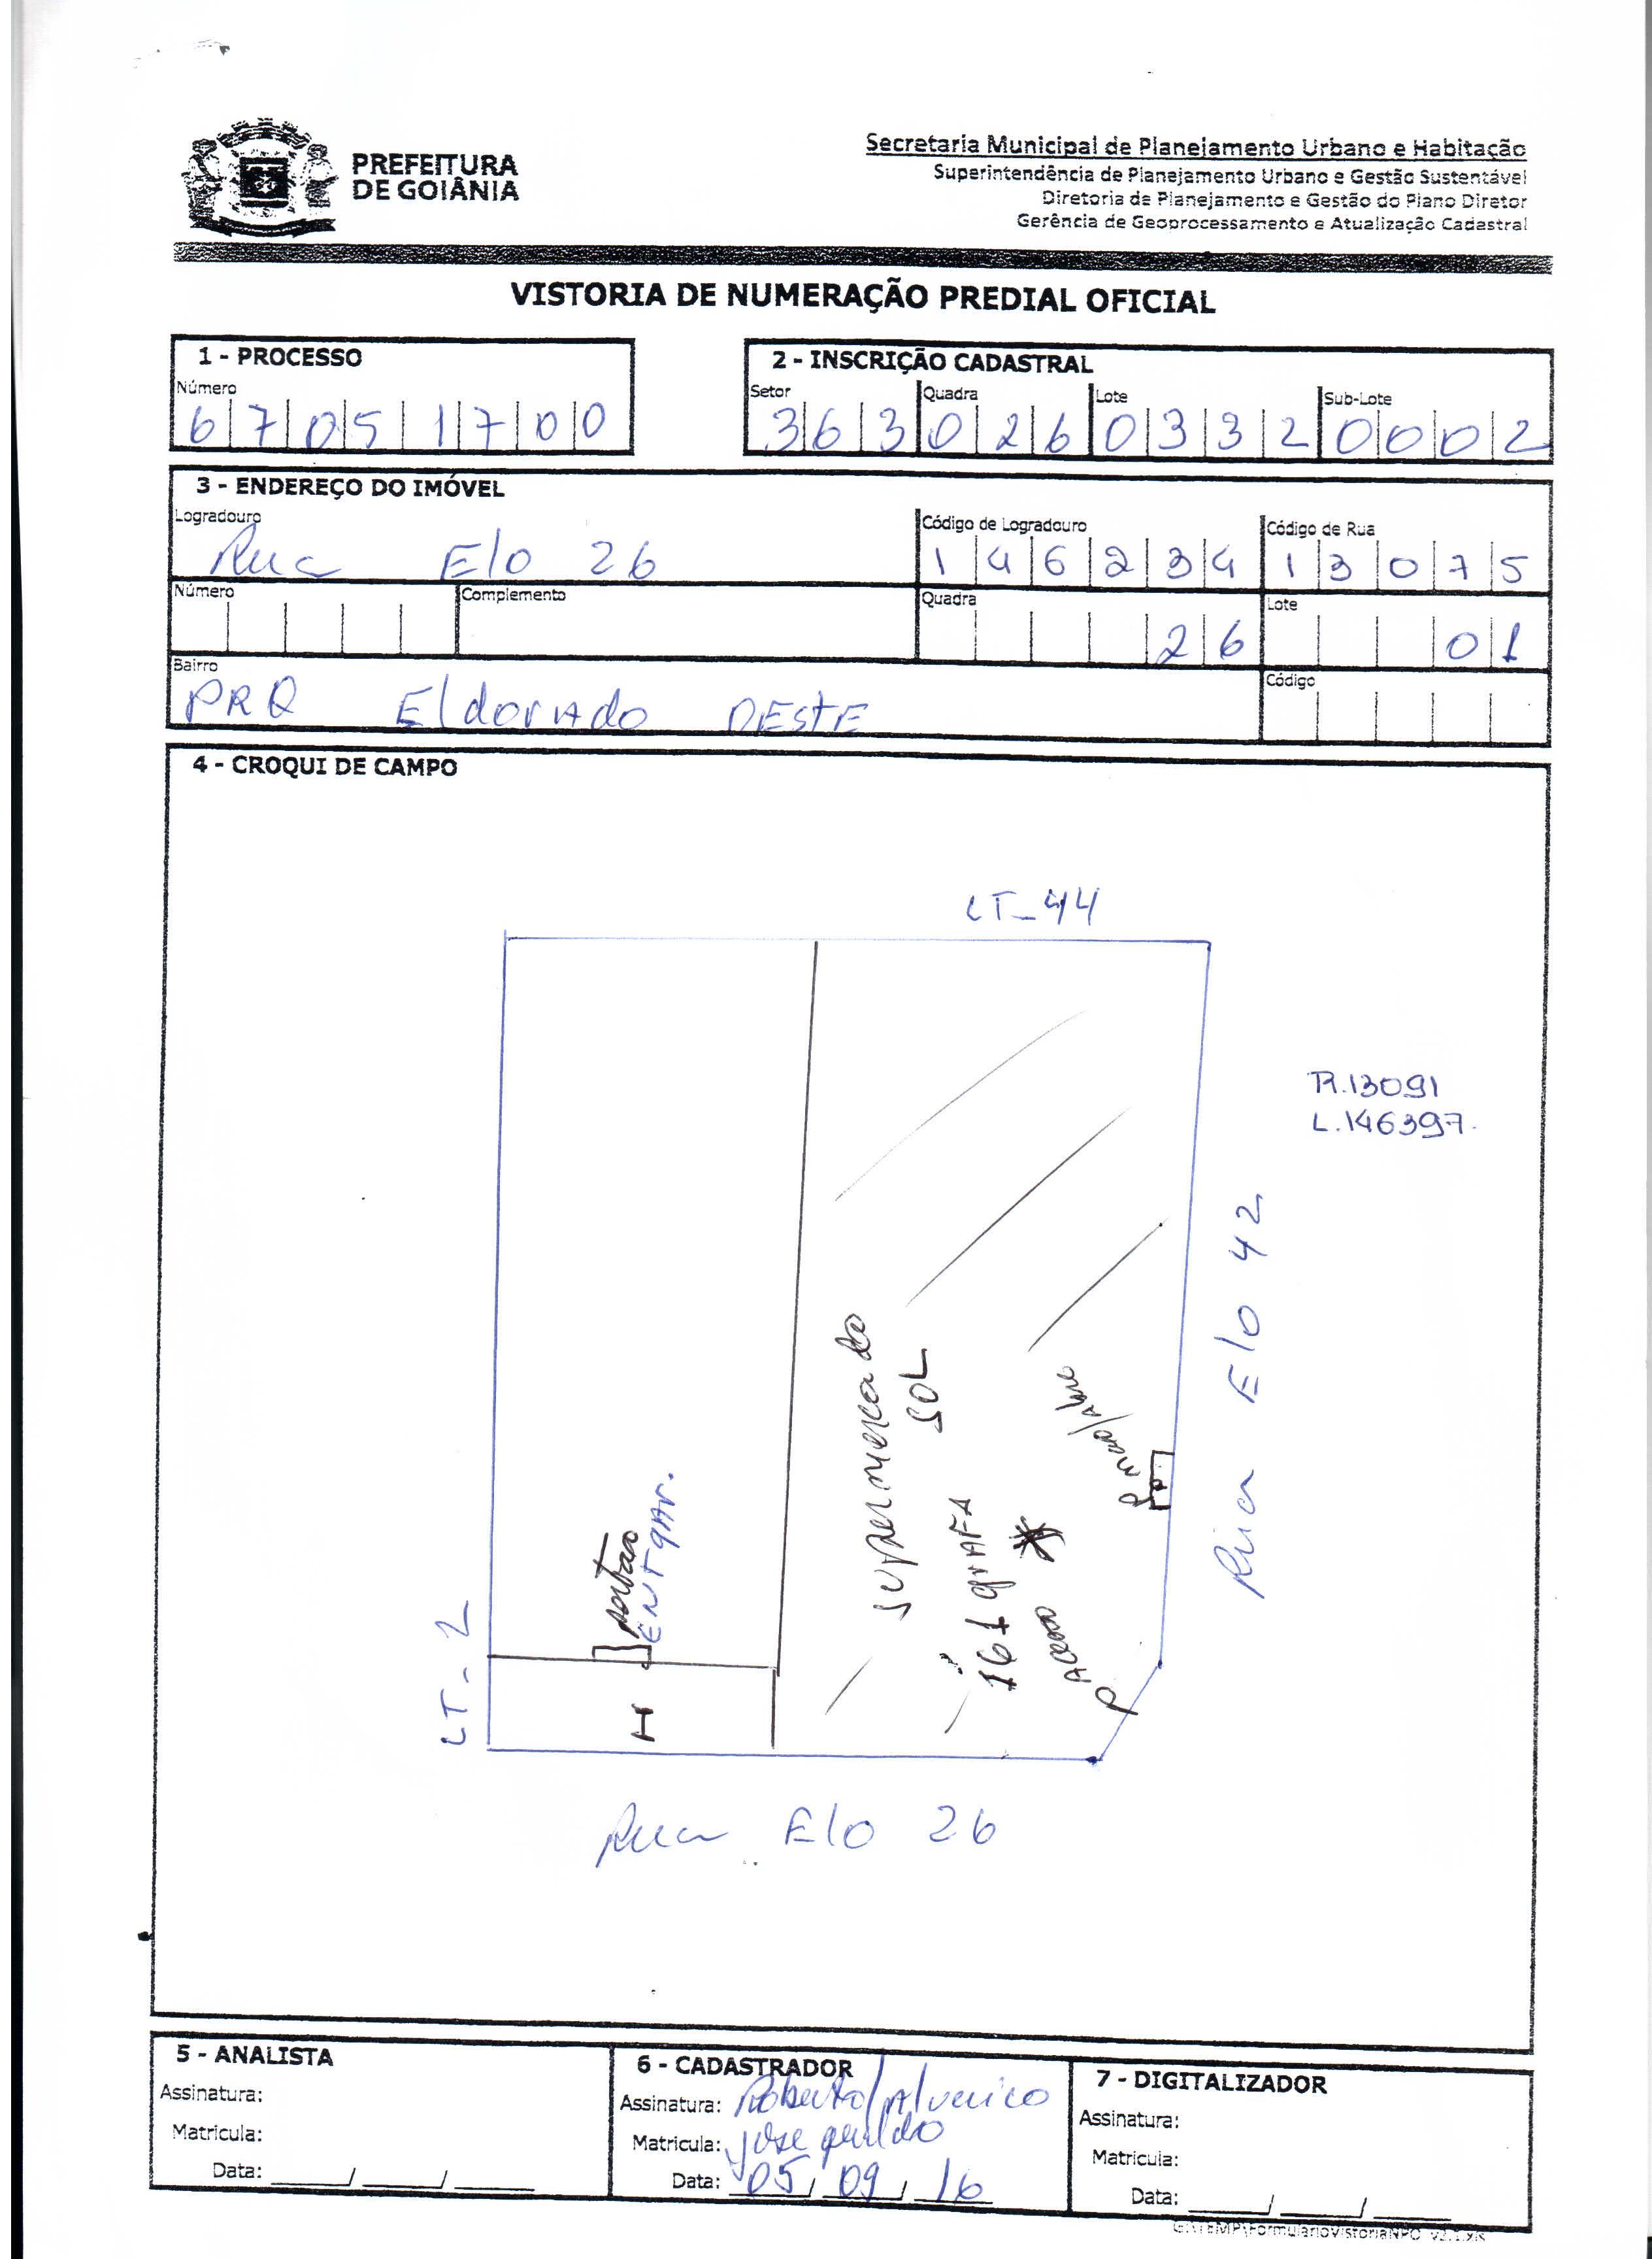 PREFEITURA
DE GOIÂNIA
Secretaria Municipal de Planejamento Urbano e Habitação
Superintendência de Planejamento Urbano e Gestão Sustentável
Diretoria de Planejamento e Gestão do Plano Diretor
Gerência de Geoprocessamento e Atualização Cadastral
VISTORIA DE NUMERAÇÃO PREDIAL OFICIAL
1 - PROCESSO
Número
6 7 0 5 1 7 0 0
2 - INSCRIÇÃO CADASTRAL
Setor Quadra Lote Sub-Lote
3 6 3 0 2 6 0 3 3 2 0 0 0 2
3 - ENDEREÇO DO IMÓVEL
Logradouro Código de Logradouro Código de Rua
Rua Elo 26 1 4 6 2 3 4 1 3 0 7 5
Número Complemento Quadra Lote
2 6 0 1
Bairro Código
PRQ Eldorado OESTE
4 - CROQUI DE CAMPO
LT_44
R.13091
L.146397.
Rua Elo 42
supermercado
SOL
portão
ENT gAr.
LT - 2
H
Rua Elo 26
5 - ANALISTA
Assinatura:
Matricula:
Data: ____/____/____
6 - CADASTRADOR
Assinatura: Roberto/
Matricula: jose
Data: 05/09/16
7 - DIGITALIZADOR
Assinatura:
Matricula:
Data: ____/____/____
G:\TEMP\FormularioVistoriaNPO_v2.1.xls